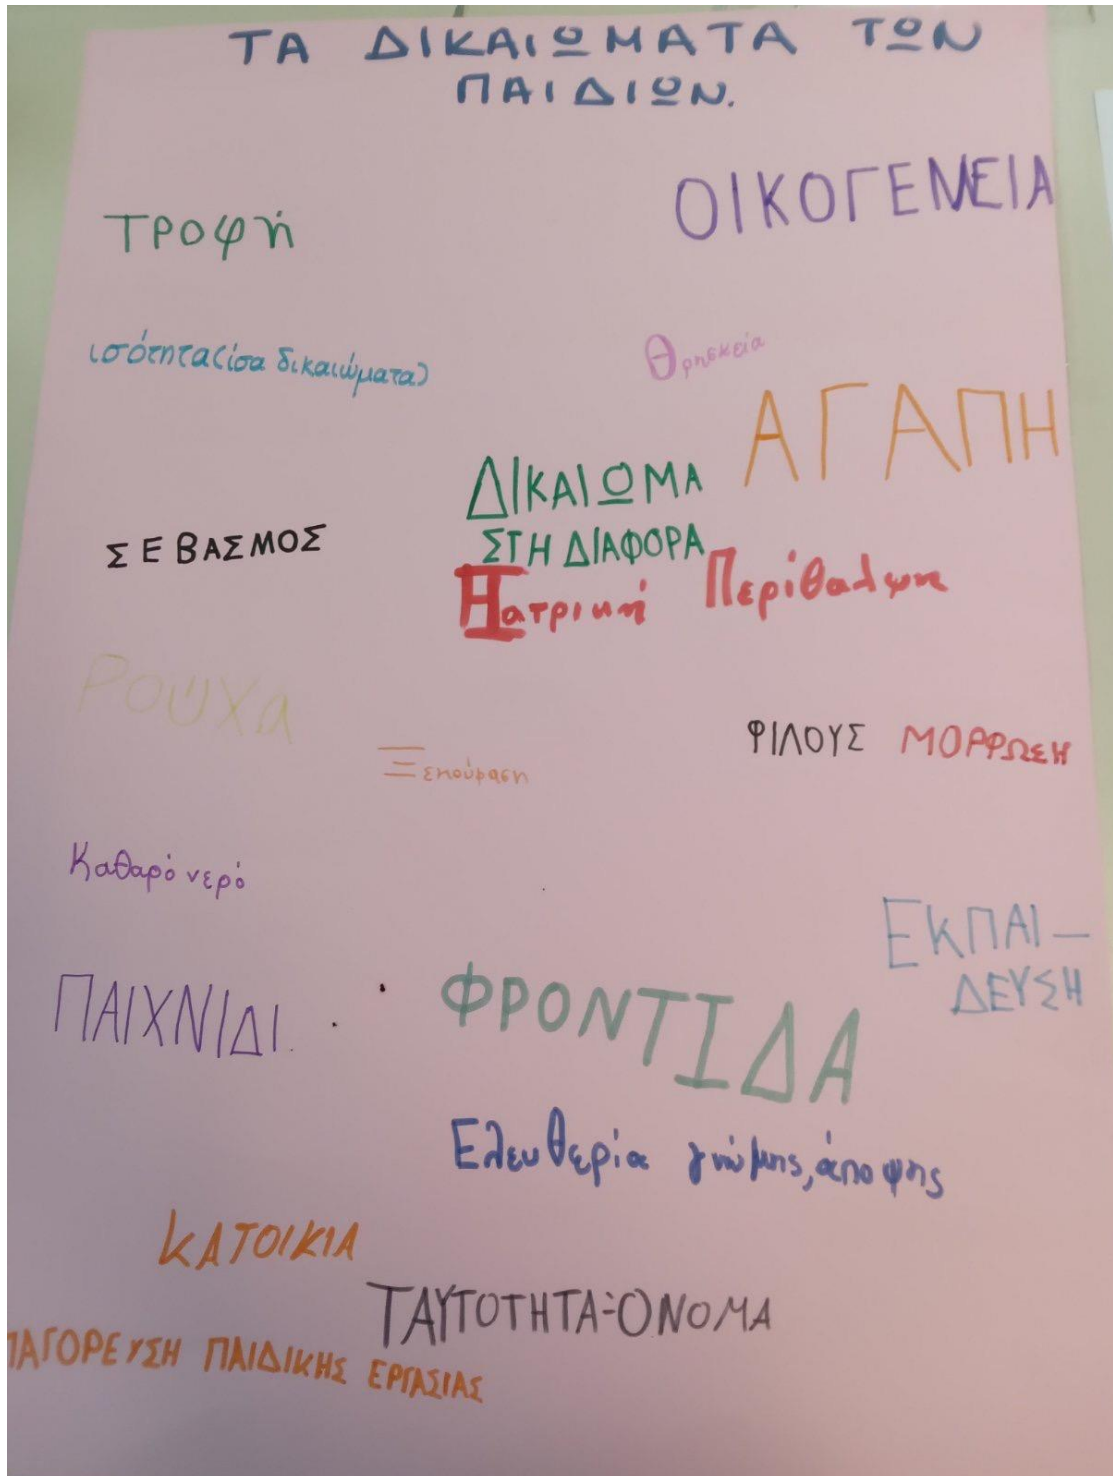 ΤΑ ΔΙΚΑΙΩΜΑΤΑ ΤΩΝ
ΠΑΙΔΙΩΝ.
ΟΙΚΟΓΕΝΕΙΑ
Τροφή
ισότητα(ίσα δικαιώματα)
Θρησκεία
ΑΓΑΠΗ
ΔΙΚΑΙΩΜΑ
ΣΤΗ ΔΙΑΦΟΡΑ
ΣΕΒΑΣΜΟΣ
Ιατρική Περίθαλψη
Ρούχα
ΦΙΛΟΥΣ ΜΟΡΦΩΣΗ
Ξεκούραση
Καθαρό νερό
ΕΚΠΑΙ-
ΔΕΥΣΗ
ΠΑΙΧΝΙΔΙ.
ΦΡΟΝΤΙΔΑ
Ελευθερία γνώμης, άποψης
ΚΑΤΟΙΚΙΑ
ΤΑΥΤΟΤΗΤΑ-ΟΝΟΜΑ
ΠΑΓΟΡΕΥΣΗ ΠΑΙΔΙΚΗΣ ΕΡΓΑΣΙΑΣ